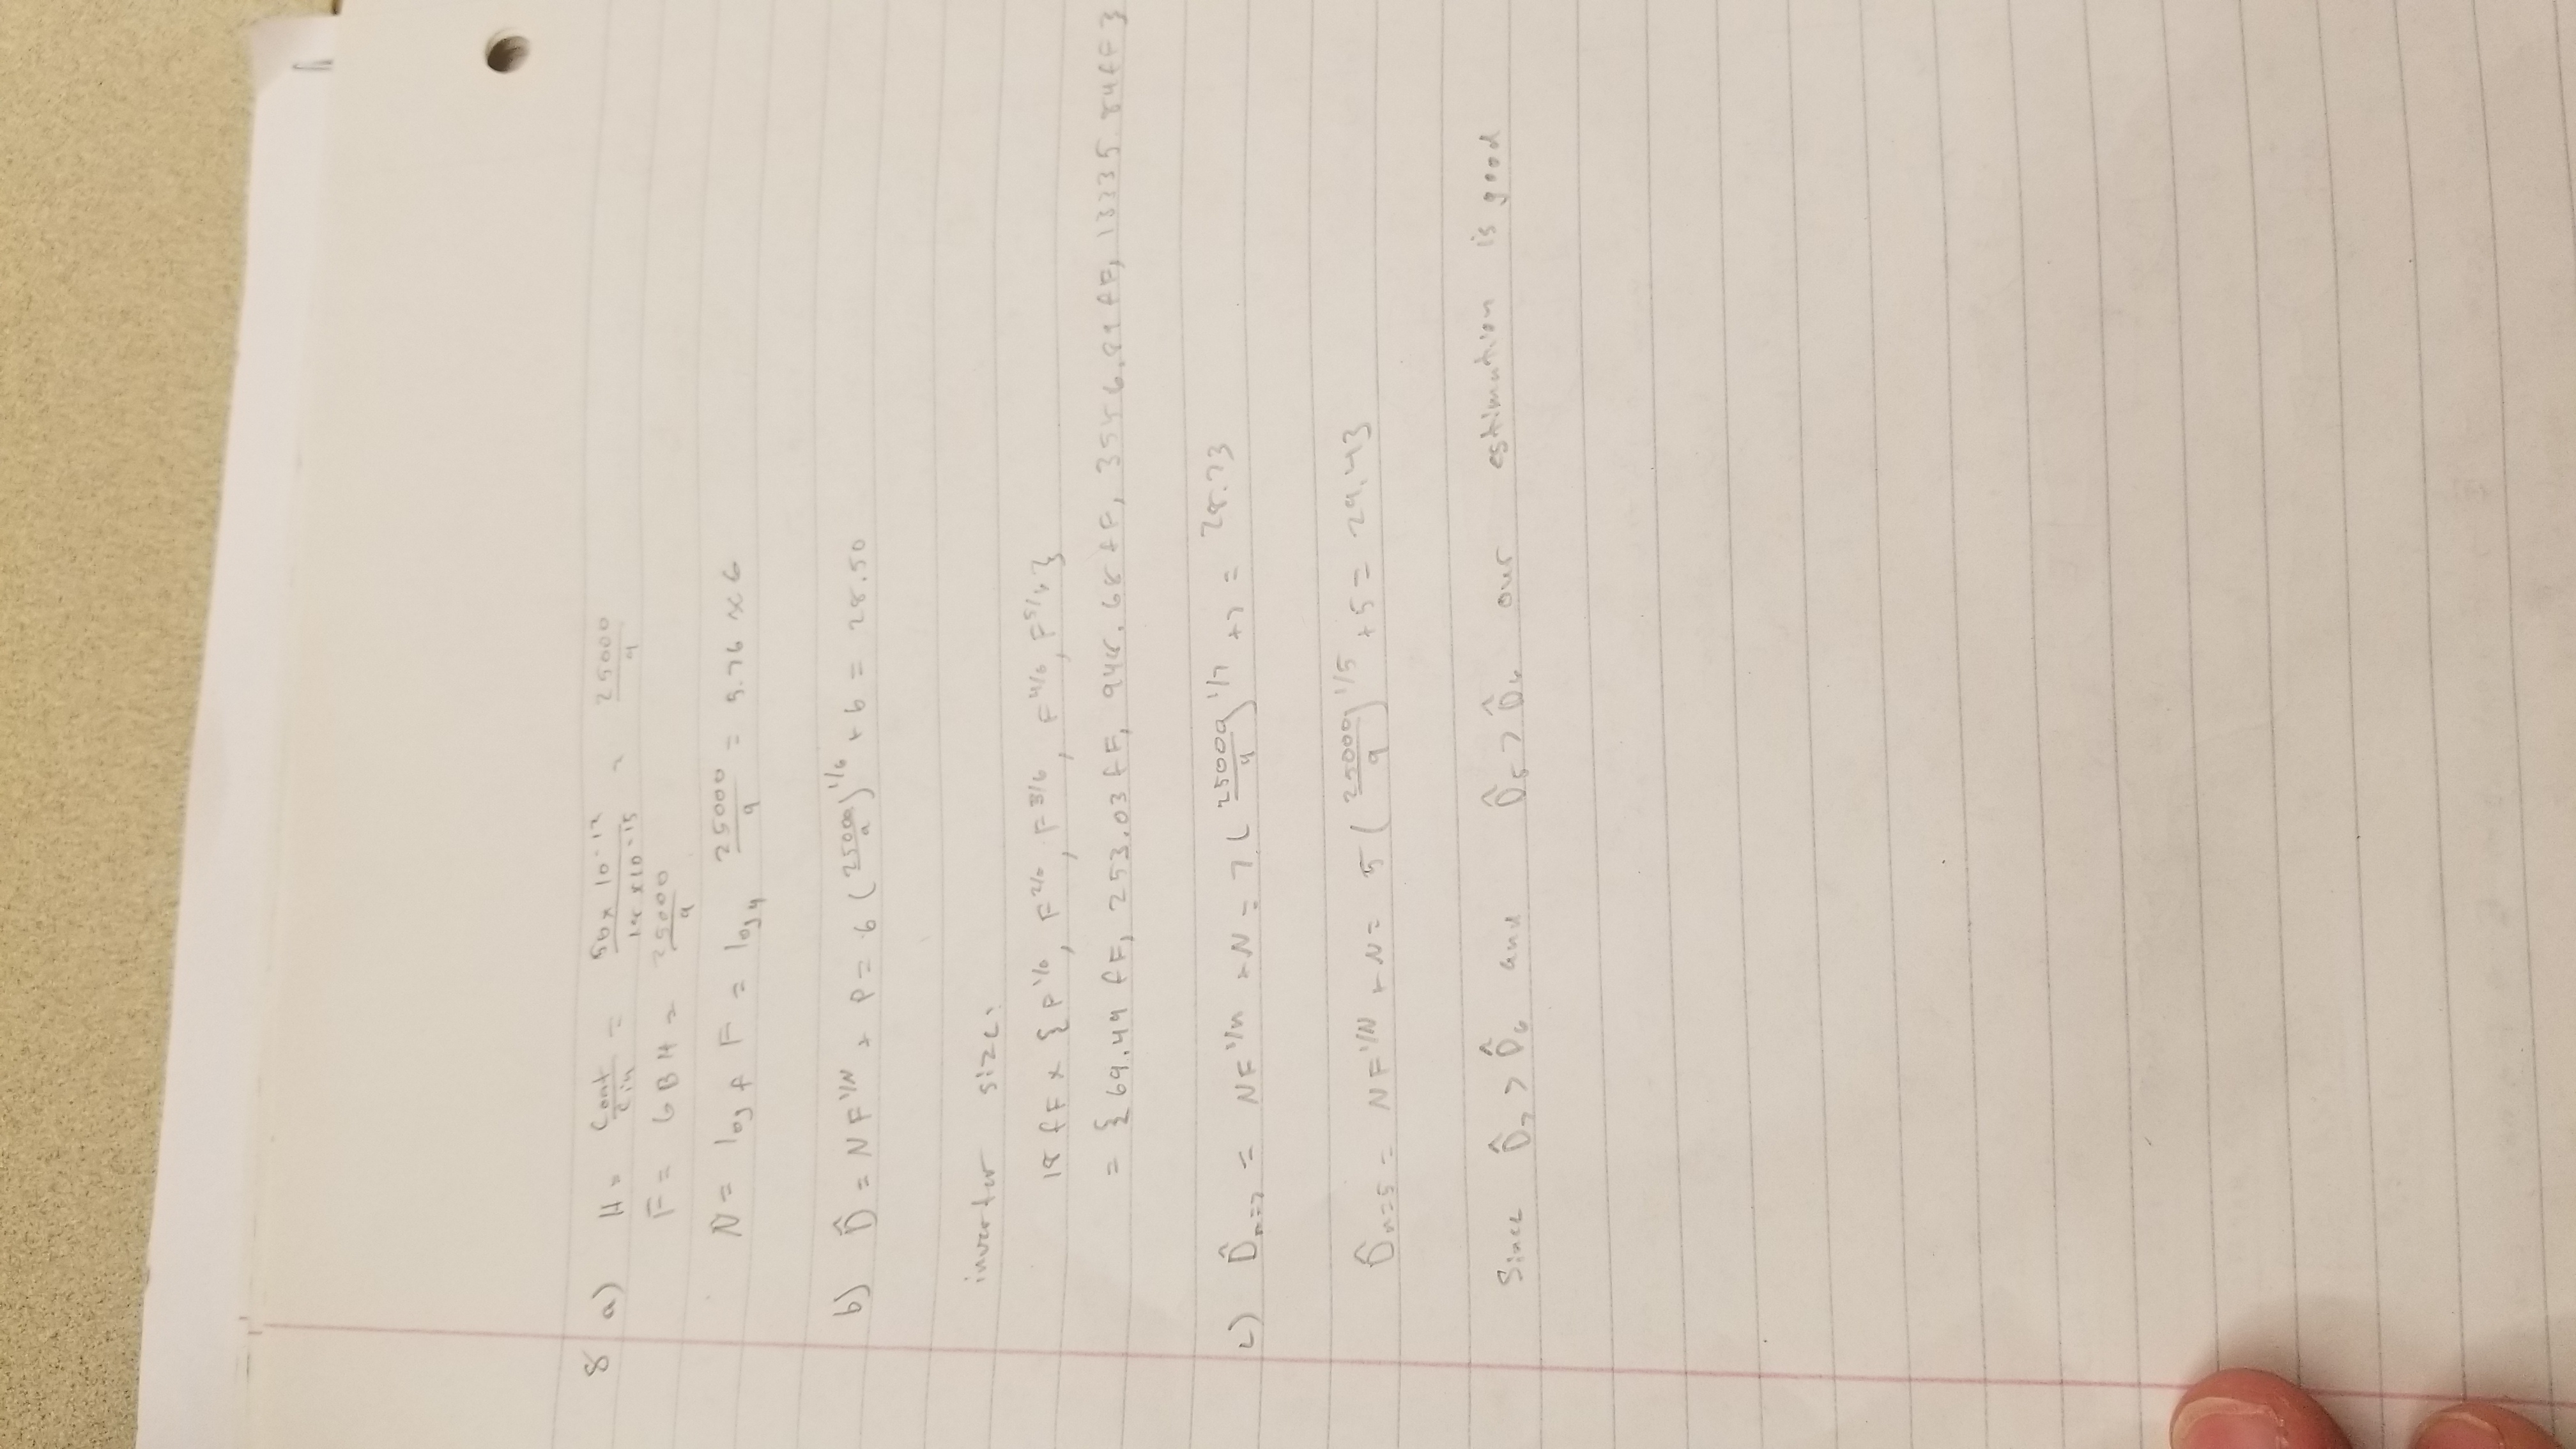 8 a) H = Cout/Cin = 50 x 10^-12 / 18 x 10^-15 = 25000/9
F = GBH = 25000/9
N = log_f F = log_4 25000/9 = 5.76 ≈ 6
b) D̂ = NF^1/N + P = 6 (25000/9)^1/6 + 6 = 28.50
inverter size:
18 fF x {F^1/6, F^2/6, F^3/6, F^4/6, F^5/6}
= {69.49 fF, 253.03 fF, 948.68 fF, 3556.89 fF, 13335.84 fF}
c) D̂_n=7 = NF^1/n + N = 7 (25000/9)^1/7 + 7 = 28.73
D̂_n=5 = NF^1/N + N = 5 (25000/9)^1/5 + 5 = 29.43
Since D̂_7 > D̂_6 and D̂_5 > D̂_6 our estimation is good